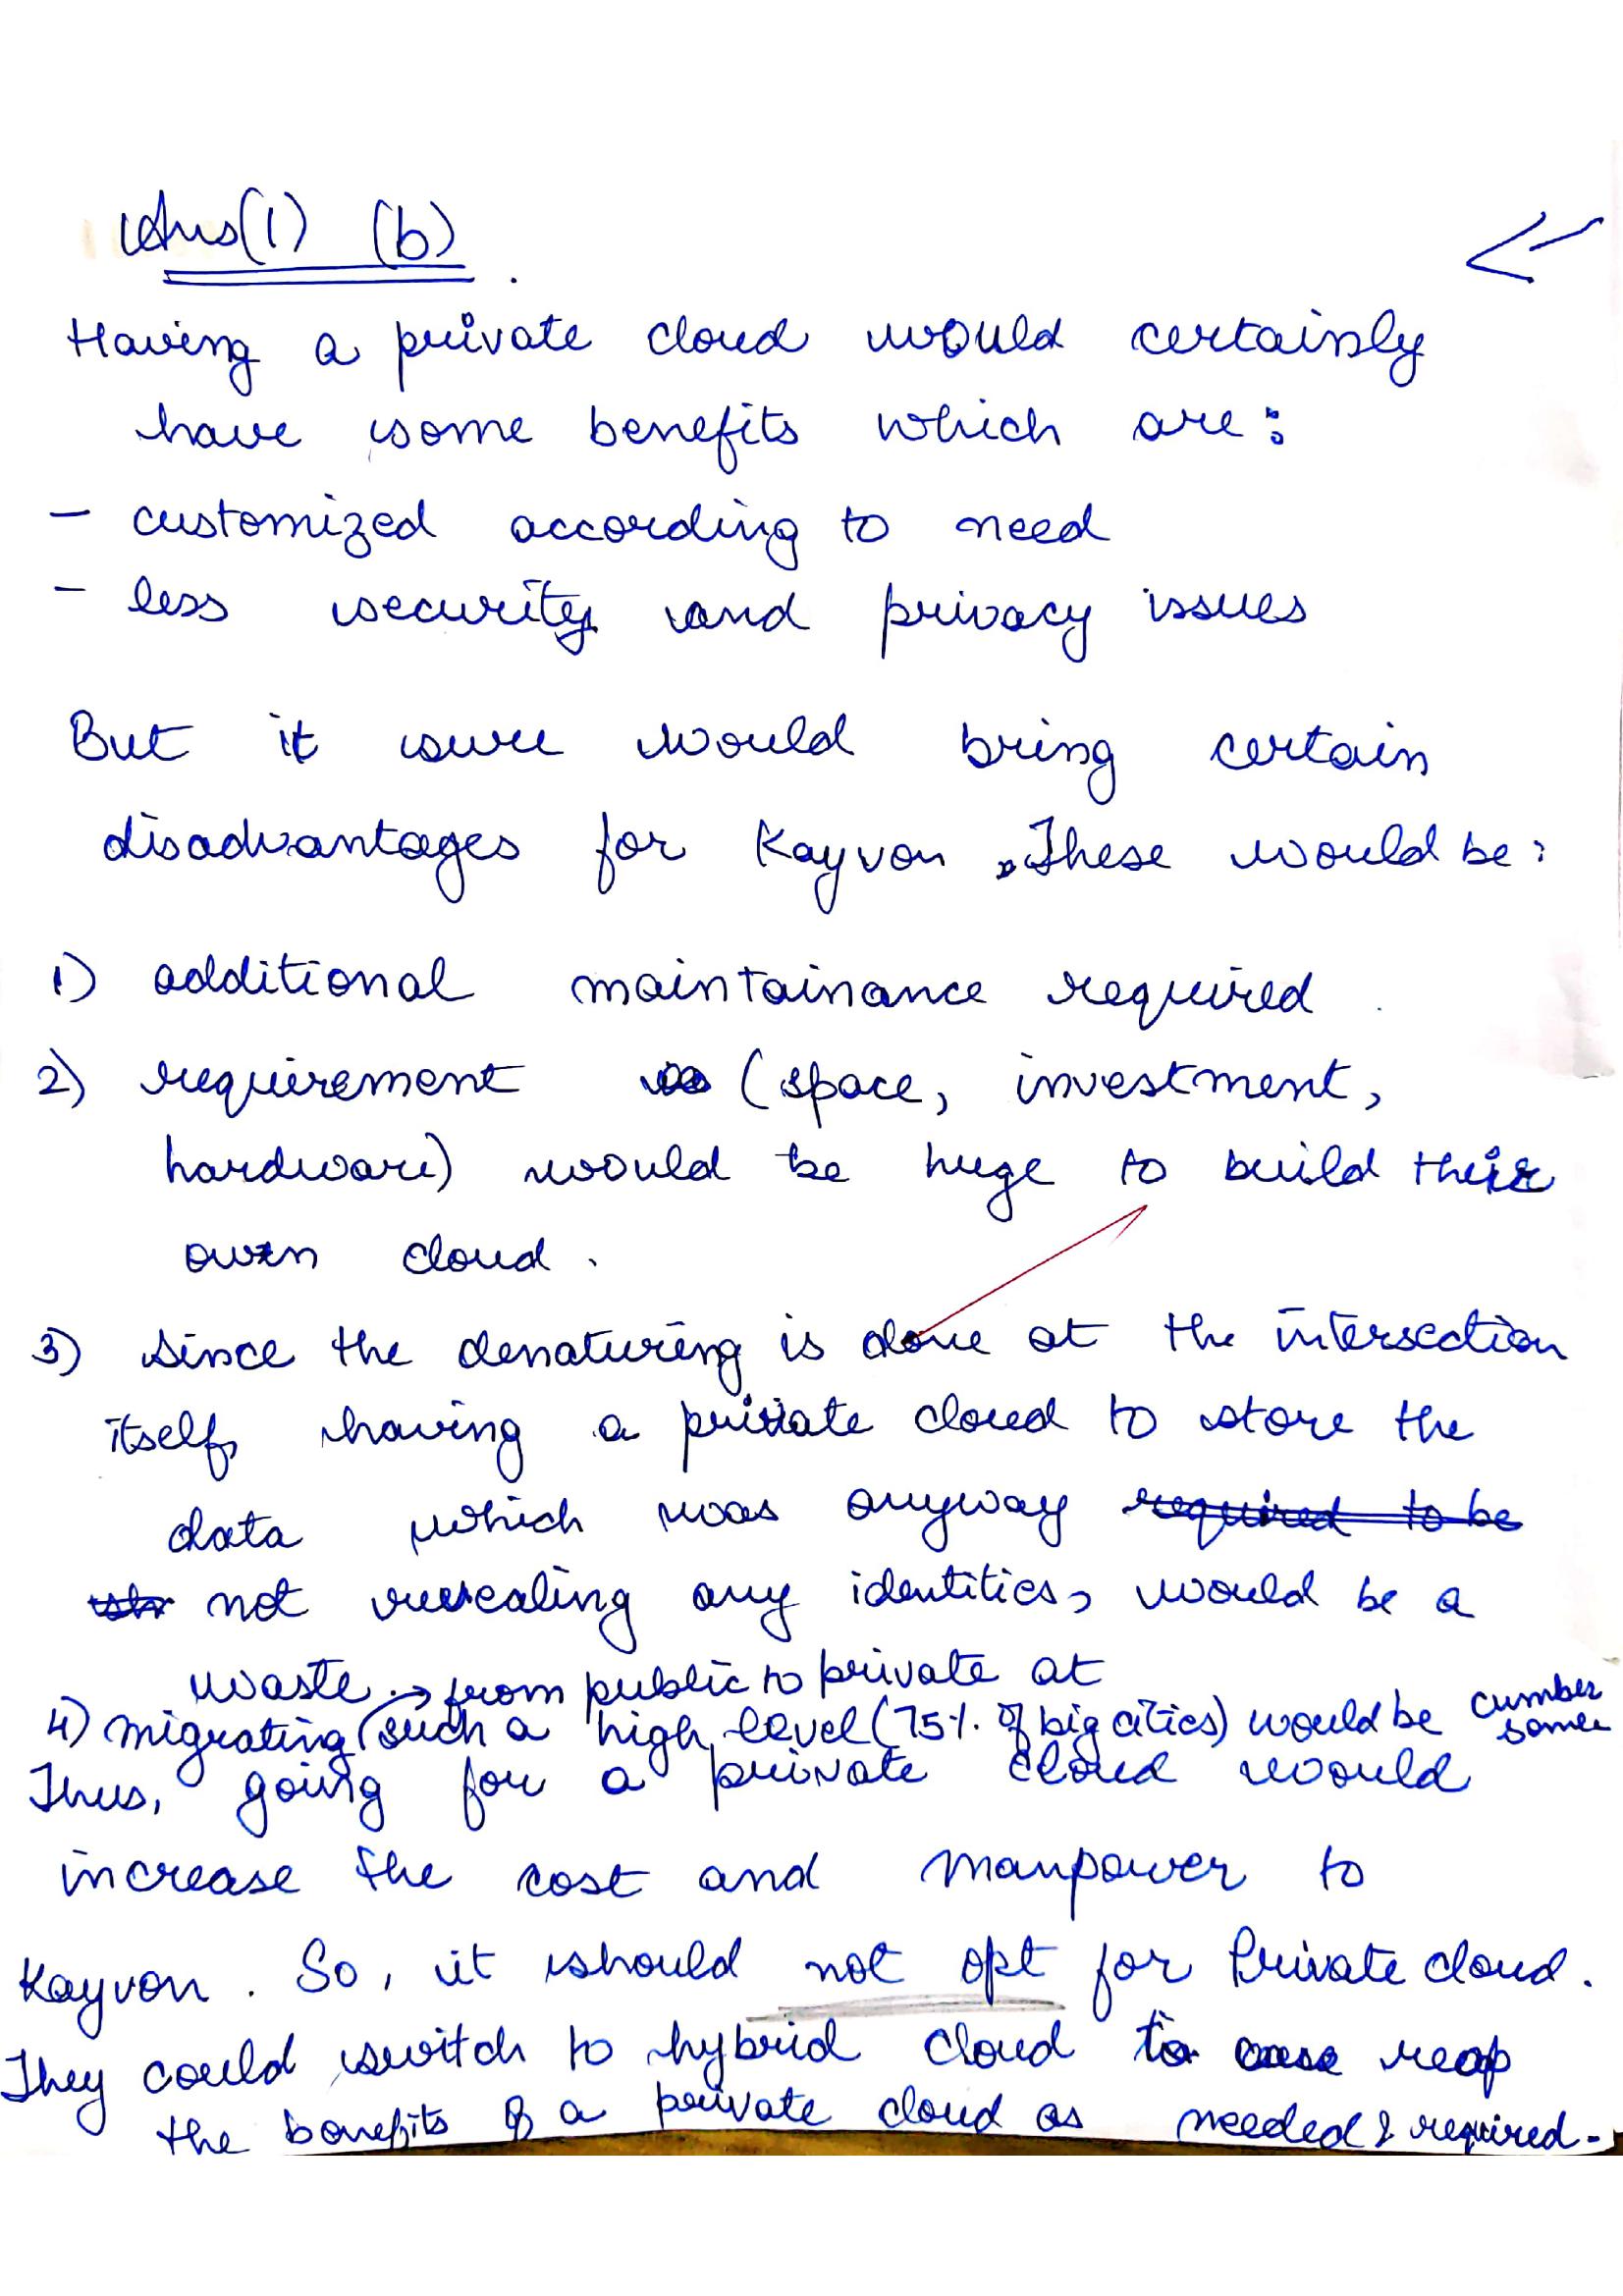 Ans(1) (b)
Having a private cloud would certainly
have some benefits which are:
- customized according to need
- less security and privacy issues
But it sure would bring certain
disadvantages for Kayvon. These would be:
1) additional maintainance required.
2) requirement (space, investment,
hardware) would be huge to build their
own cloud.
3) since the denaturing is done at the intersection
itself, having a private cloud to store the
data which was anyway required to be
not revealing any identities, would be a
waste. → from public to private at
4) migrating (such a high level (75% of big cities) would be cumber
some
Thus, going for a private cloud would
increase the cost and manpower to
Kayvon. So, it should not opt for Private cloud.
They could switch to hybrid cloud to reap
the benefits of a private cloud as needed & required.